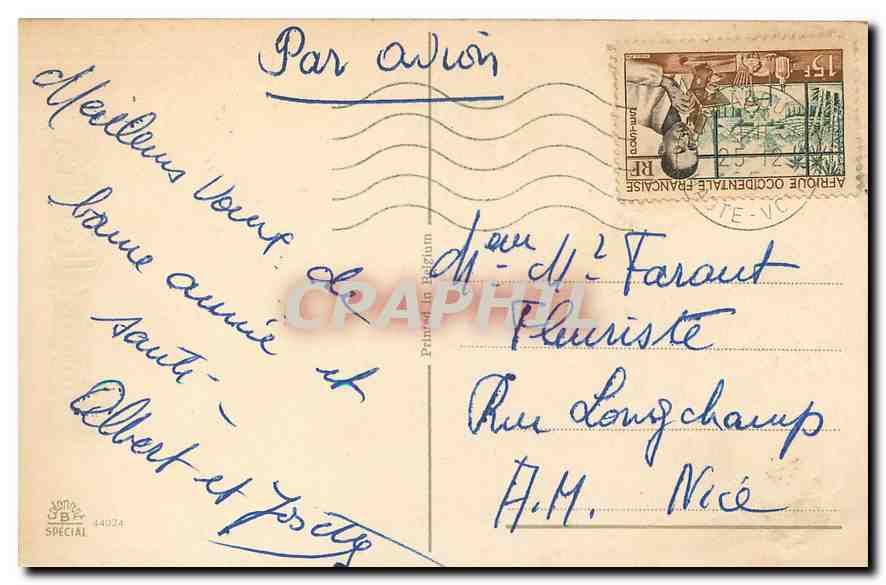 Par avion
Meilleurs Voeux de
bonne année et
santé -
Albert et Josette
Printed in Belgium
CRAPHIL
15F
RF
AFRIQUE OCCIDENTALE FRANÇAISE
25-12
Mme Mr Faraut
Fleuriste
Rue Longchamp
A.M. Nice
Colorprint
B
SPECIAL
44024